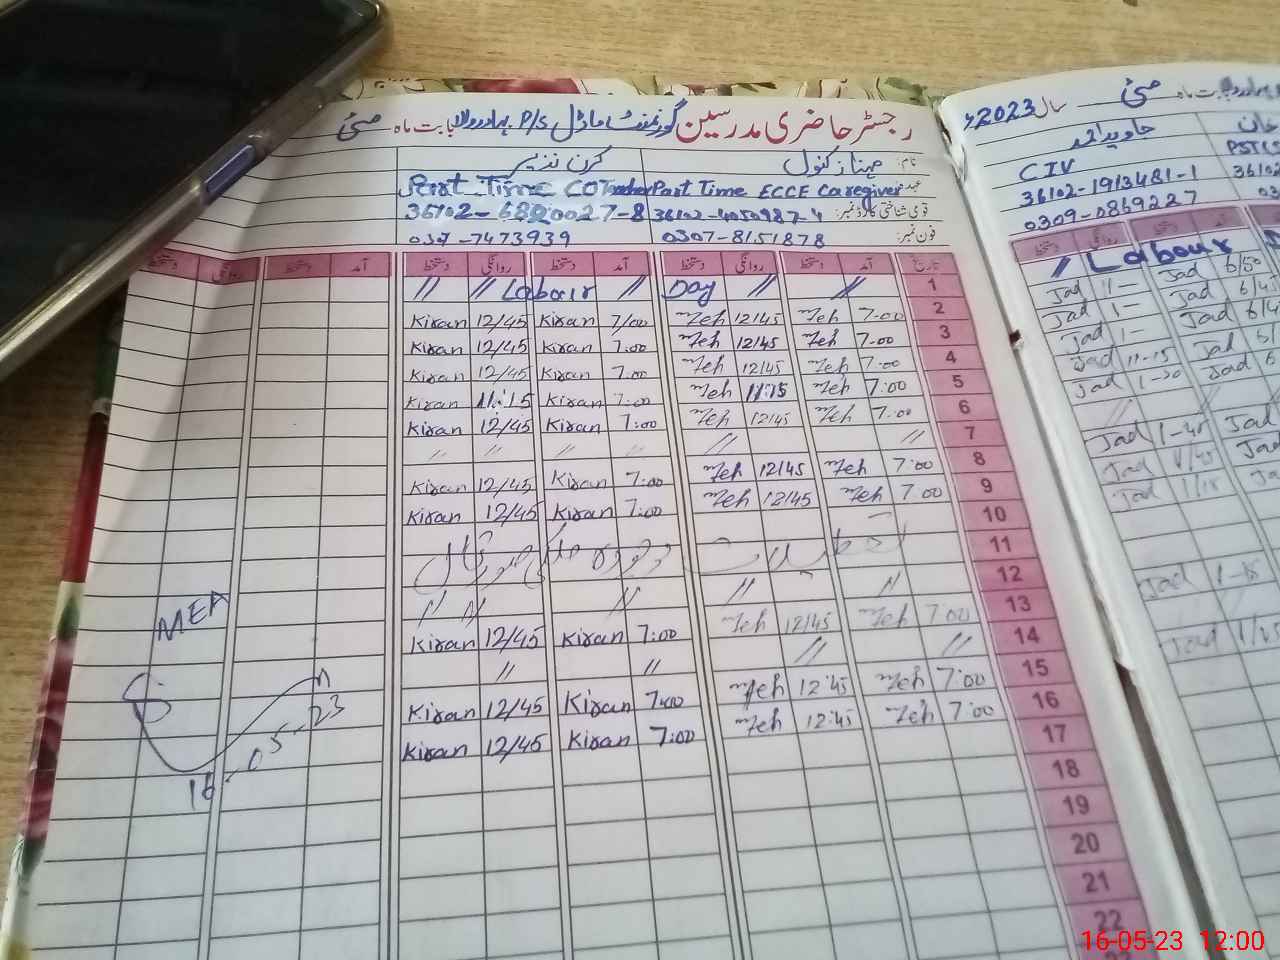 رجسٹر حاضری مدرسین گورنمنٹ ماڈل P/S بہادرولا بابت ماہ مئی
نام: مہناز کنول کرن نزیر
عہدہ Part Time ECCE Caregiver Part Time COT
قومی شناختی کارڈ نمبر: 36102-4050987-4 36102-6820027-8
فون نمبر: 0307-8151878 0307-7473939
تاریخ آمد دستخط روانگی دستخط آمد دستخط روانگی دستخط آمد دستخط روانگی دستخط
// // Labour // Day // // 1
Kiran 12/45 Kiran 7/00 Meh 12/45 Meh 7-00 2
Kiran 12/45 Kiran 7:00 Meh 12/45 Meh 7-00 3
Kiran 12/45 Kiran 7:00 Meh 12/45 Meh 7:00 4
Kiran 11:15 Kiran 7:00 Meh 11:15 Meh 7:00 5
Kiran 12/45 Kiran 7:00 Meh 12/45 Meh 7:00 6
// // // // // // 7
Kiran 12/45 Kiran 7:00 Meh 12/45 Meh 7:00 8
Kiran 12/45 Kiran 7:00 Meh 12/45 Meh 7:00 9
10
11
// // // // // 12
Kiran 12/45 Kiran 7:00 Meh 12/45 Meh 7:00 13
// // // // 14
Kiran 12/45 Kiran 7:00 Meh 12:45 Meh 7:00 15
Kiran 12/45 Kiran 7:00 Meh 12:45 Meh 7:00 16
17
18
19
20
21
22
MEA
16-05-23
بابت ماہ مئی سال 2023ء
جاوید احمد
CIV
36102-1913481-1
0309-0869227
دستخط روانگی دستخط آمد
// Labour
Jad 11- Jad 6/50
Jad 1- Jad 6/45
Jad 1- Jad 6/4
Jad 11-15 Jad
Jad 1-30 Jad 6
//
Jad 1-45 Jad
Jad 1/45 Jad
Jad 1/15 Ja
Jad 1-15
Jad 1/15
خان
PST
36102
16-05-23 12:00